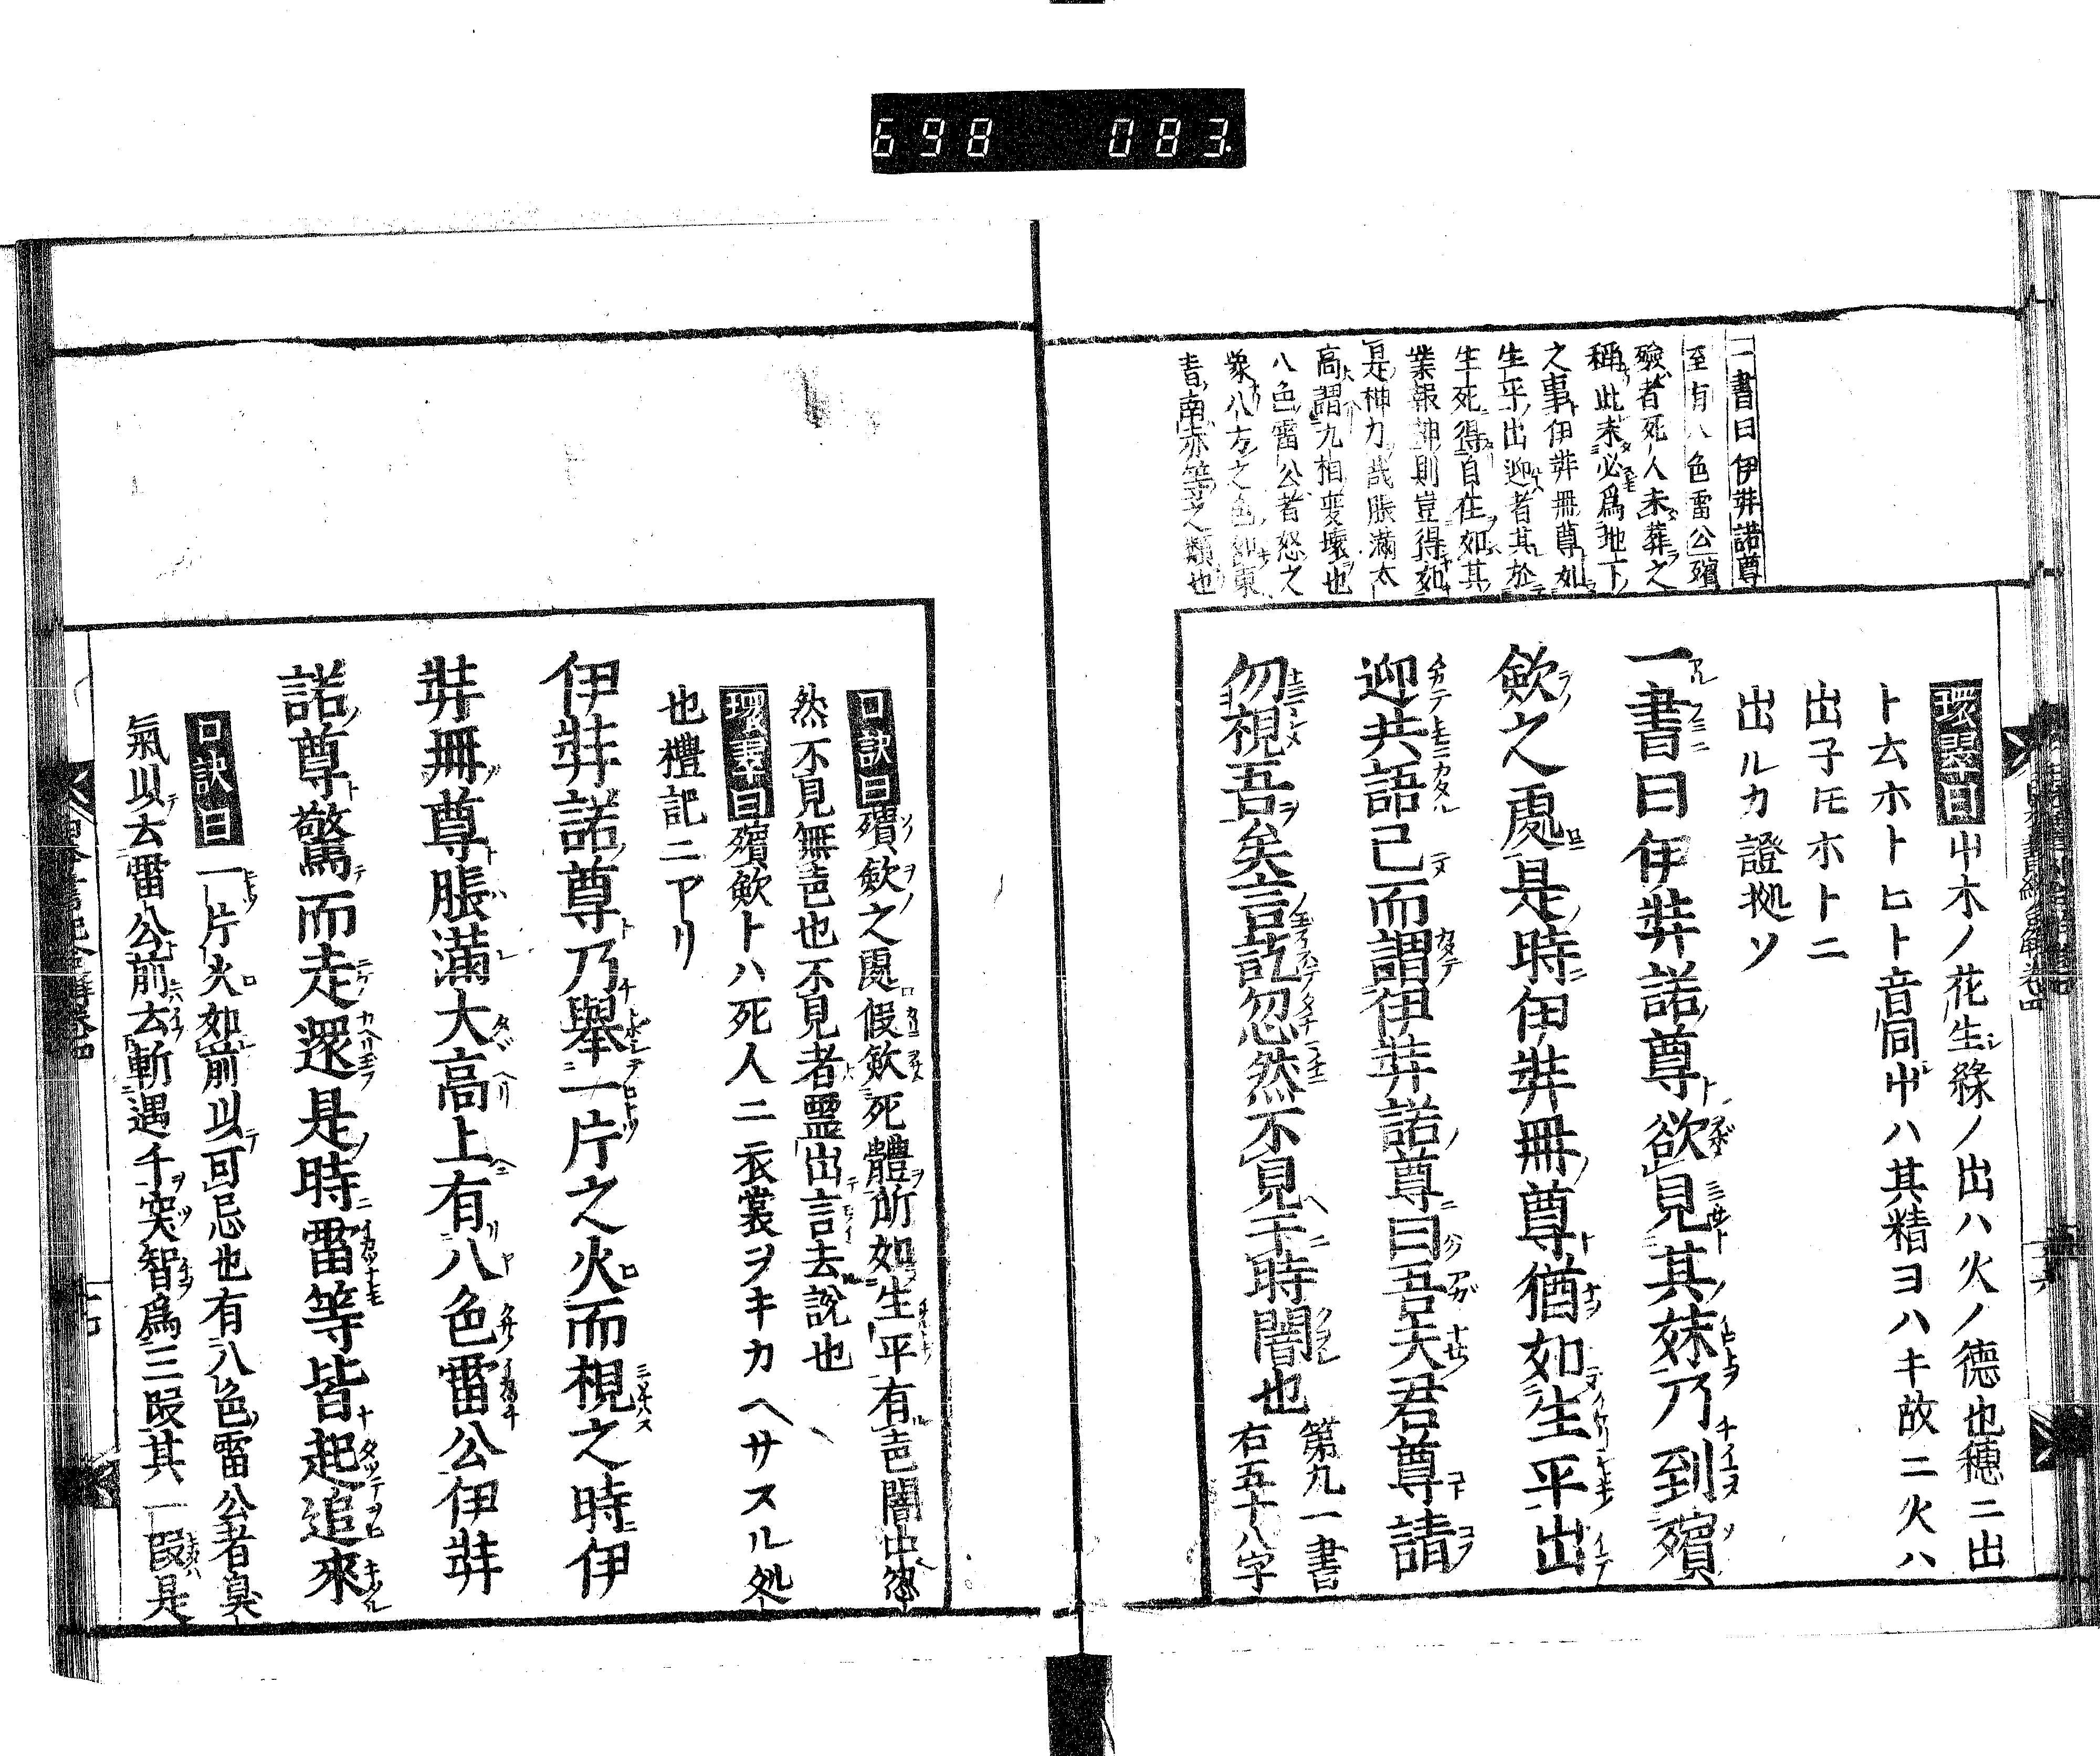 698 083
一書曰伊弉諾尊
至有八色雷公殯
殮者死人未葬之
稱此未必爲地下
之事伊弉冊尊如
生平出迎者其於
生死得自在如其
業報神則豈得如
是神力哉脹滿太
高謂九相変壞也
八色雷公者怒之
衆八方之色如東
青南赤等之類也
環翠曰屮木ノ花生緑ノ出ハ火ノ徳也穗ニ出
ト云ホトヒト音同屮ハ其精ヨハキ故ニ火ハ
出子ㇳモホトニ
出ルカ證拠ソ
一書曰伊弉諾尊欲見其妹乃到殯
歛之處是時伊弉冊尊猶如生平出
迎共語已而謂伊弉諾尊曰吾夫君尊請
勿視吾矣言訖忽然不見于時闇也
第九一書
右五十八字
口訣曰殯歛之處假歛死體所如生平有㐌闇出忽
然不見無㐌也不見者靈出言去說也
環翠曰殯歛トハ死人ニ衣裳ヲキカヘサスル処
也禮記ニアリ
伊弉諾尊乃舉一片之火而視之時伊
弉冊尊脹滿大高上有八色雷公伊弉
諾尊驚而走還是時雷等皆起追來
口訣曰一片火如前以可忌也有八色雷公者臭
氣以去雷公前去斬遇千突智爲三段其一段是